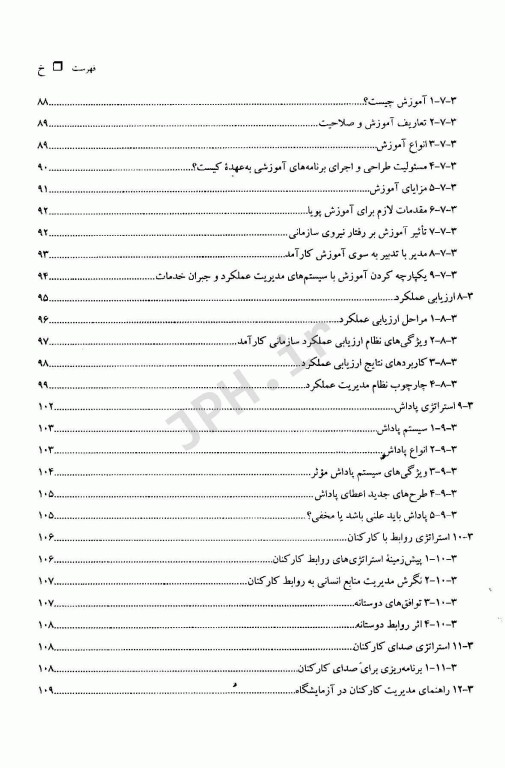 فهرست ❐ خ
۳-۷-۱ آموزش چیست؟..........۸۸
۳-۷-۲ تعاریف آموزش و صلاحیت..........۸۹
۳-۷-۳ انواع آموزش..........۸۹
۳-۷-۴ مسئولیت طراحی و اجرای برنامه‌های آموزشی به‌عهدۀ کیست؟..........۹۰
۳-۷-۵ مزایای آموزش..........۹۱
۳-۷-۶ مقدمات لازم برای آموزش پویا..........۹۲
۳-۷-۷ تأثیر آموزش بر رفتار نیروی سازمانی..........۹۲
۳-۷-۸ مدیر با تدبیر به سوی آموزش کارآمد..........۹۳
۳-۷-۹ یکپارچه کردن آموزش با سیستم‌های مدیریت عملکرد و جبران خدمات..........۹۴
۳-۸ ارزیابی عملکرد..........۹۵
۳-۸-۱ مراحل ارزیابی عملکرد..........۹۶
۳-۸-۲ ویژگی‌های نظام ارزیابی عملکرد سازمانی کارآمد..........۹۷
۳-۸-۳ کاربردهای نتایج ارزیابی عملکرد..........۹۸
۳-۸-۴ چارچوب نظام مدیریت عملکرد..........۹۹
۳-۹ استراتژی پاداش..........۱۰۲
۳-۹-۱ سیستم پاداش..........۱۰۳
۳-۹-۲ انواع پاداش..........۱۰۳
۳-۹-۳ ویژگی‌های سیستم پاداش مؤثر..........۱۰۴
۳-۹-۴ طرح‌های جدید اعطای پاداش..........۱۰۵
۳-۹-۵ پاداش باید علنی باشد یا مخفی؟..........۱۰۵
۳-۱۰ استراتژی روابط با کارکنان..........۱۰۶
۳-۱۰-۱ پیش‌زمینۀ استراتژی‌های روابط کارکنان..........۱۰۶
۳-۱۰-۲ نگرش مدیریت منابع انسانی به روابط کارکنان..........۱۰۷
۳-۱۰-۳ توافق‌های دوستانه..........۱۰۷
۳-۱۰-۴ اثر روابط دوستانه..........۱۰۸
۳-۱۱ استراتژی صدای کارکنان..........۱۰۸
۳-۱۱-۱ برنامه‌ریزی برای صدای کارکنان..........۱۰۸
۳-۱۲ راهنمای مدیریت کارکنان در آزمایشگاه..........۱۰۹
JPH.ir